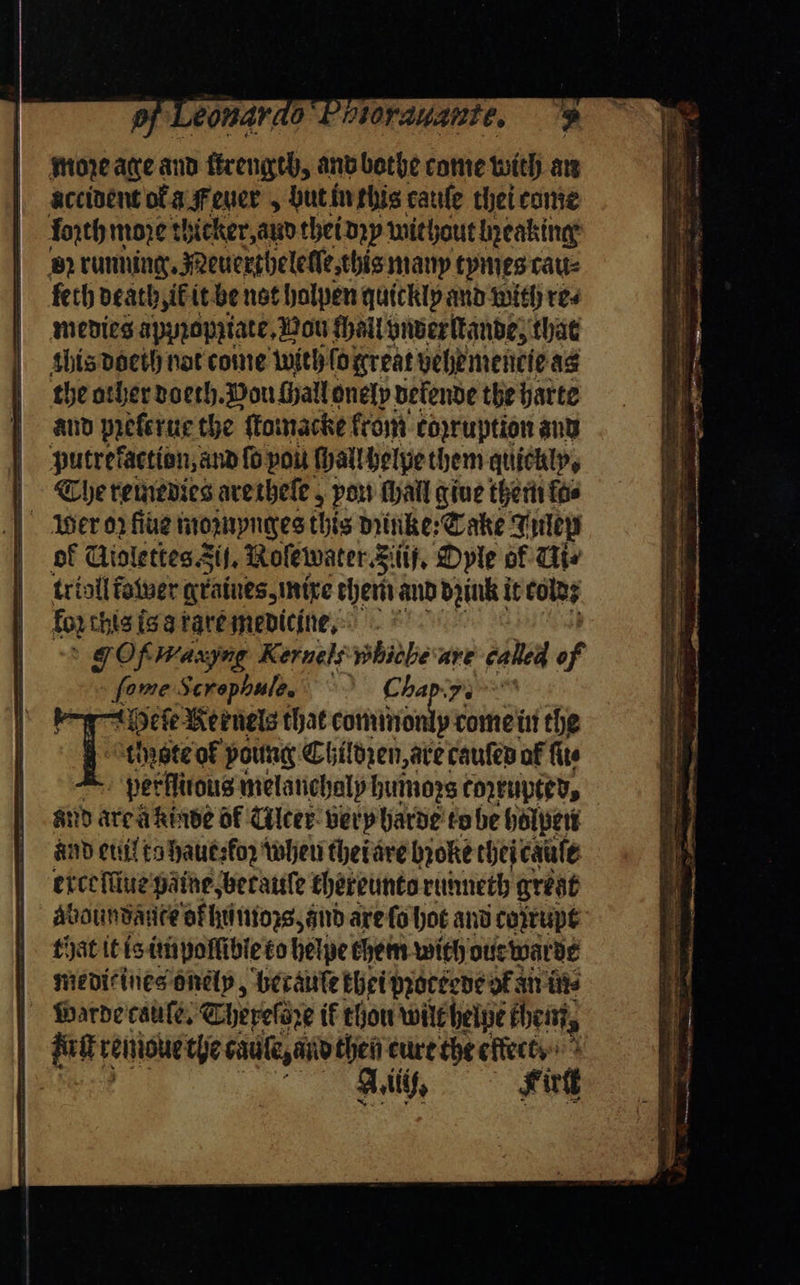 of Leonardo Phiorauante. 9
more age and strength, and bothe come with an
accident of a Feuer, but in this cause thei come
forth more thicker, and thei dry without breaking
or running. Neuerthelesse, this many tymes cau-
seth death, if it be not holpen quickly and with re-
medies appropriate. You shall vnderstande, that
this doeth not come with so great vehemencie as
the other doeth. You shall onely defende the harte
and preserue the stomacke from corruption and
putrefaction, and so you shall helpe them quickly.
The remedies are these, you shall giue them fo-
wer or fiue mornynges this drinke: Take Iuley
of Violettes. ℥ij. Rosewater. ℥iiij. Oyle of Vi-
trioll fower graines, mixe them and drink it cold;
for this is a rare medicine.
¶ Of Waxyng Kernels whiche are called of
some Scrophule. Chap. 7.
These Kernels that commonly come in the
throte of young Children, are caused of su-
perfluous melancholy humors corrupted,
and are a kinde of Vlcer very harde to be holpen
and euil to haue: for when thei are broke thei cause
excessiue paine, because thereunto runneth great
aboundance of humors, and are so hot and corrupt
that it is impossible to helpe them with outwarde
medicines onely, because thei proceede of an in-
warde cause. Therefore if thou wilt helpe them,
first remoue the cause, and then cure the effect.
A.iiij. First